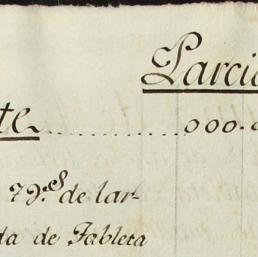 Parcia
te ............ 000.
79.s de lar-
da de Tableta